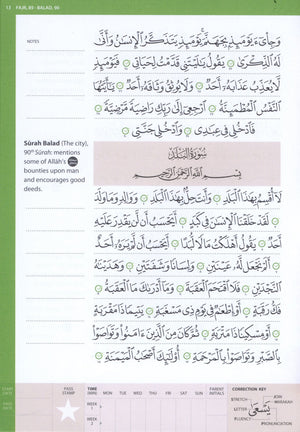 12 FAJR, 89 - BALAD, 90
NOTES
وَجِاْىٓءَ يَوْمَئِذٍۭ بِجَهَنَّمَ ۚ يَوْمَئِذٍ يَتَذَكَّرُ ٱلْإِنسَٰنُ وَأَنَّىٰ
لَهُ ٱلذِّكْرَىٰ يَقُولُ يَٰلَيْتَنِى قَدَّمْتُ لِحَيَاتِى فَيَوْمَئِذٍ
لَّا يُعَذِّبُ عَذَابَهُۥٓ أَحَدٌ وَلَا يُوثِقُ وَثَاقَهُۥٓ أَحَدٌ يَٰٓأَيَّتُهَا
ٱلنَّفْسُ ٱلْمُطْمَئِنَّةُ ٱرْجِعِىٓ إِلَىٰ رَبِّكِ رَاضِيَةً مَّرْضِيَّةً
فَٱدْخُلِى فِى عِبَٰدِى وَٱدْخُلِى جَنَّتِى
Sūrah Balad (The city),
90th Sūrah: mentions
some of Allāh's
bounties upon man
and encourages good
deeds.
سُورَةُ ٱلْبَلَدِ
بِسْمِ ٱللَّهِ ٱلرَّحْمَٰنِ ٱلرَّحِيمِ
لَآ أُقْسِمُ بِهَٰذَا ٱلْبَلَدِ وَأَنتَ حِلٌّۢ بِهَٰذَا ٱلْبَلَدِ وَوَالِدٍ وَمَا وَلَدَ
لَقَدْ خَلَقْنَا ٱلْإِنسَٰنَ فِى كَبَدٍ أَيَحْسَبُ أَن لَّن يَقْدِرَ عَلَيْهِ
أَحَدٌ يَقُولُ أَهْلَكْتُ مَالًا لُّبَدًا أَيَحْسَبُ أَن لَّمْ يَرَهُۥٓ أَحَدٌ
أَلَمْ نَجْعَل لَّهُۥ عَيْنَيْنِ وَلِسَانًا وَشَفَتَيْنِ وَهَدَيْنَٰهُ
ٱلنَّجْدَيْنِ فَلَا ٱقْتَحَمَ ٱلْعَقَبَةَ وَمَآ أَدْرَىٰكَ مَا ٱلْعَقَبَةُ
فَكُّ رَقَبَةٍ أَوْ إِطْعَٰمٌ فِى يَوْمٍ ذِى مَسْغَبَةٍ يَتِيمًا ذَا مَقْرَبَةٍ
أَوْ مِسْكِينًا ذَا مَتْرَبَةٍ ثُمَّ كَانَ مِنَ ٱلَّذِينَ ءَامَنُوا۟ وَتَوَاصَوْا۟
بِٱلصَّبْرِ وَتَوَاصَوْا۟ بِٱلْمَرْحَمَةِ أُو۟لَٰٓئِكَ أَصْحَٰبُ ٱلْمَيْمَنَةِ
START DATE
PASS DATE
PASS STAMP
TIME (MIN) MON TUE WED THU FRI SAT SUN PARENT INITIALS
WEEK 1
WEEK 2
CORRECTION KEY
STRETCH
LETTER
FLUENCY
JOIN
HARAKAH
PRONUNCIATION
يَسْعَىٰ